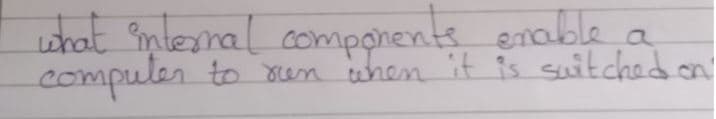 what internal components enable a
computer to run when it is switched on